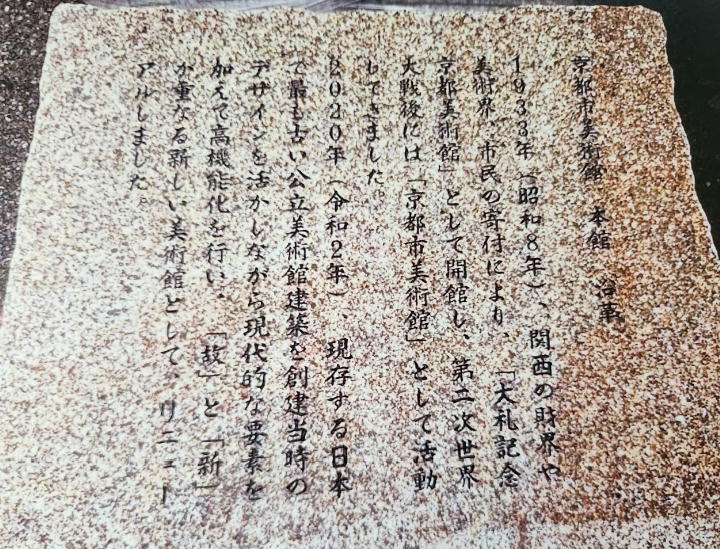 京都市美術館 本館 沿革
1933年（昭和8年）、関西の財界や
美術界、市民の寄付により、「大礼記念
京都美術館」として開館し、第二次世界
大戦後には「京都市美術館」として活動
してきました。
2020年（令和2年）、現存する日本
で最も古い公立美術館建築を創建当時の
デザインを活かしながら現代的な要素を
加えて高機能化を行い、「故」と「新」
が重なる新しい美術館として、リニュー
アルしました。